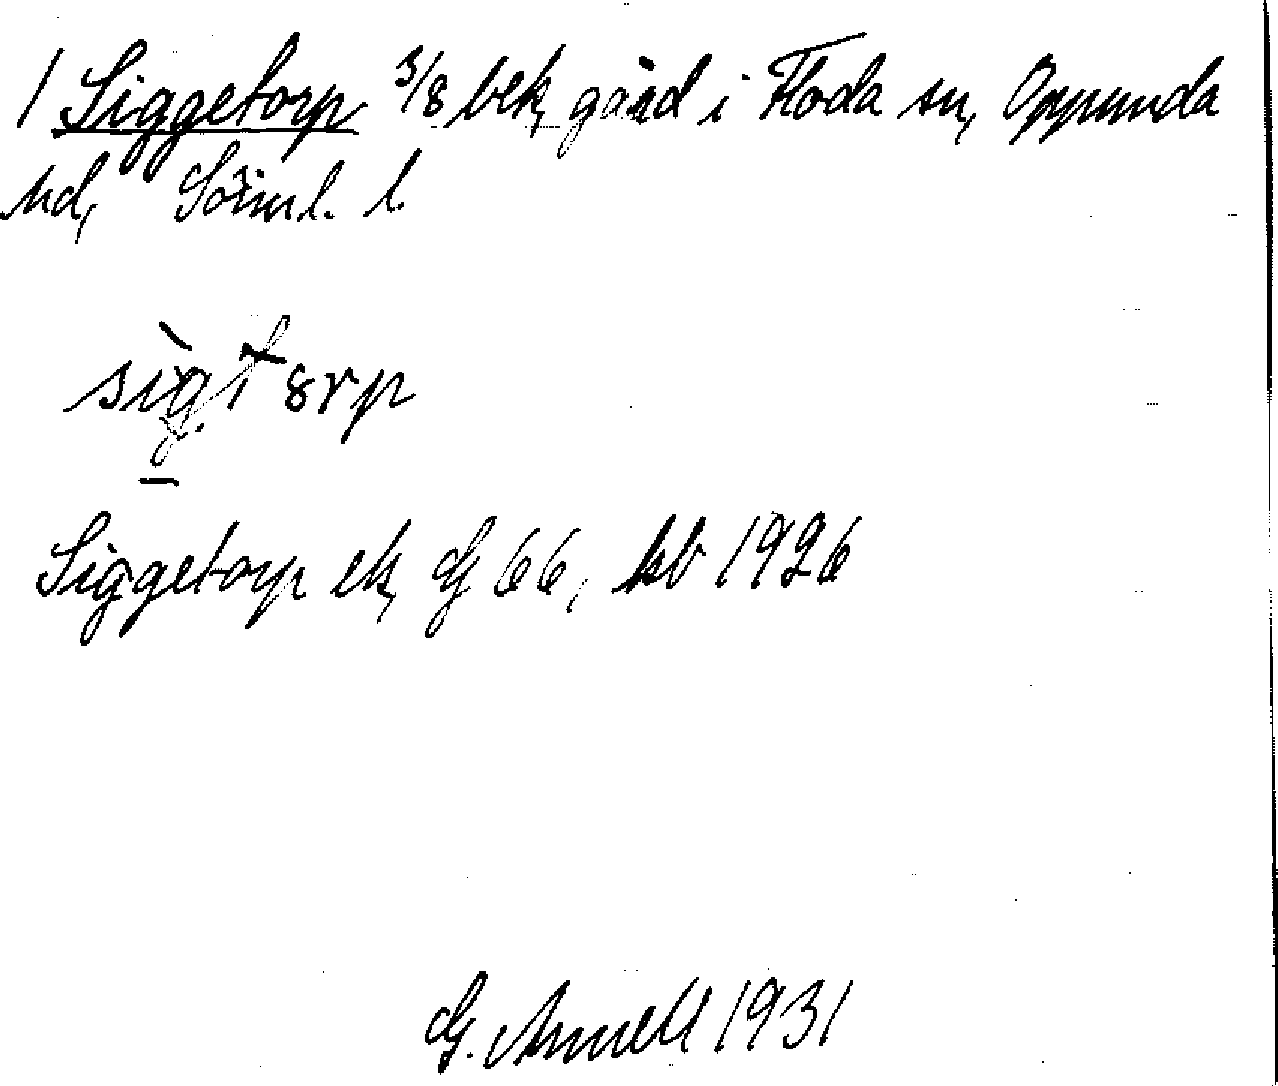 1 Siggetorp 3/8 bek, gård i Floda sn, Oppunda
hd, Söml. l.
sìgtørp
Siggetorp ek, G 66, kb 1926
G. Annell 1931